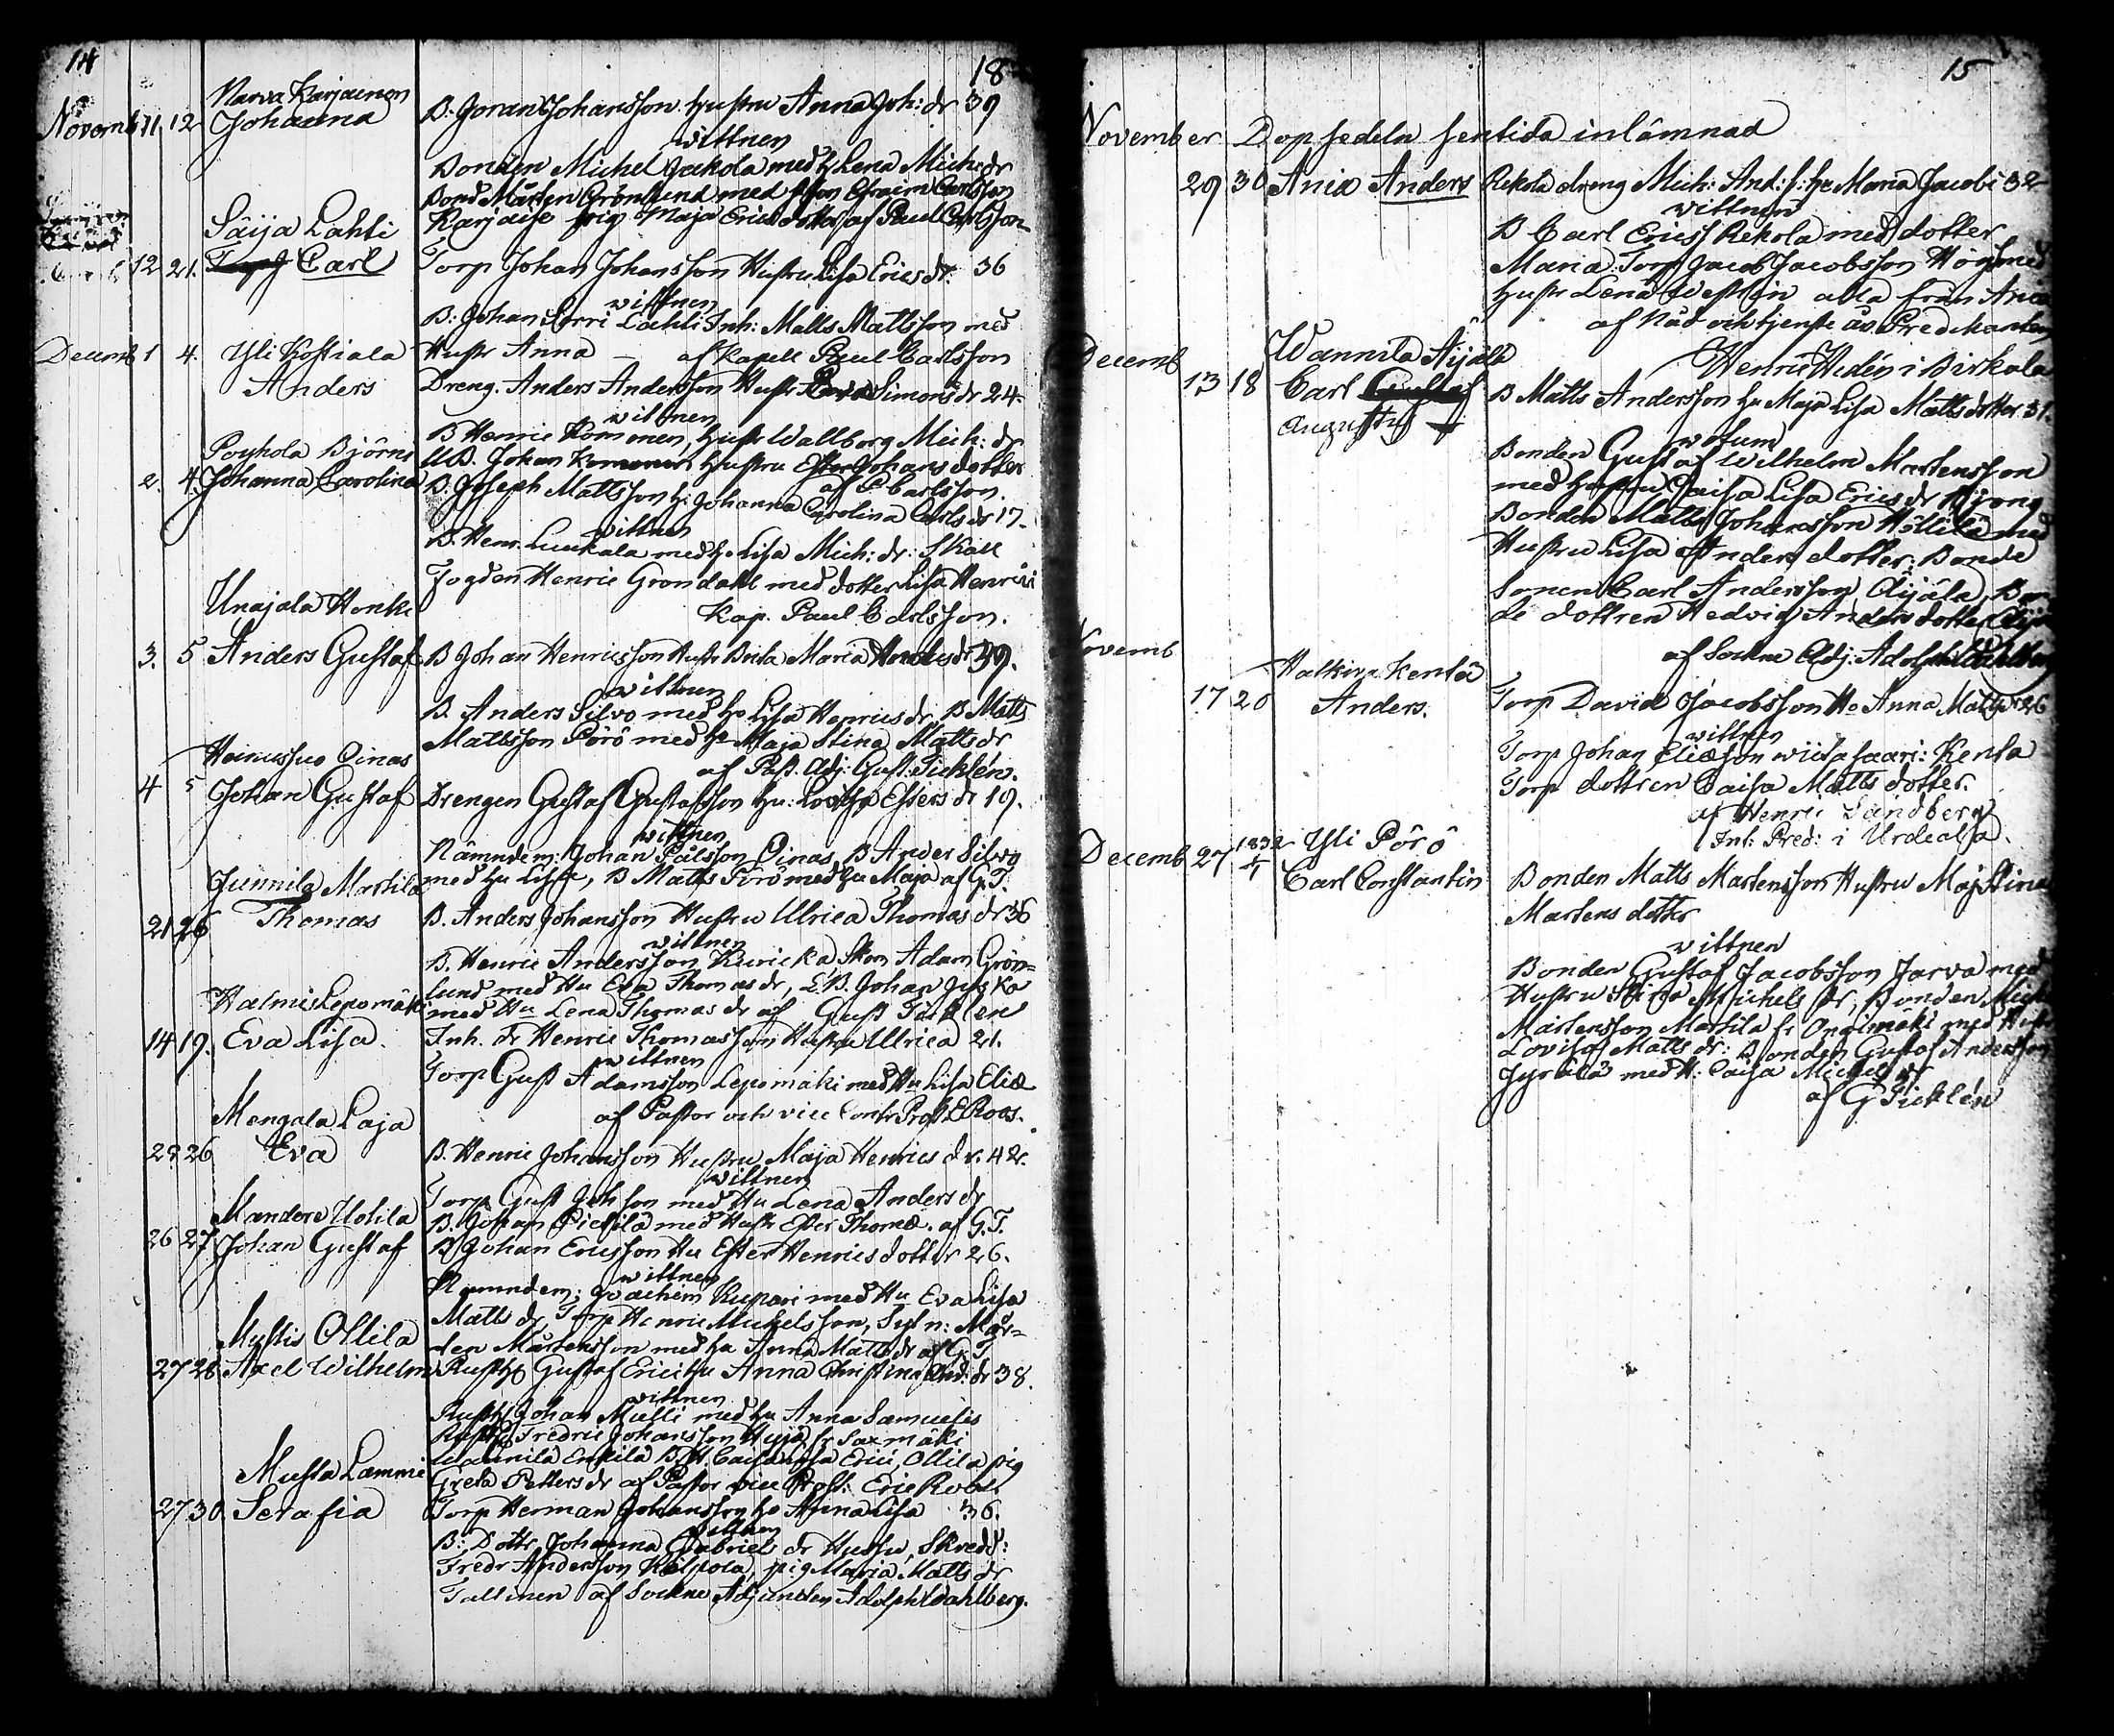 14
18
Narva Karjainen
Novemb 11 12 Johanna B. Göran Johansson Hustru Anna Joh: dr 39
wittnen
Bonden Michel Jakola med H Lena Mich: dr
Bond Mårten Grönlund med Efraim Carlsson
Karjaise pig Maja Erics dotter af Paul Carlsson
Säija Lahti
12 21. Carl Torp Johan Johansson Hustru Lisa Erics dr. 36
wittnen
B: Johan Sorri Lahti Inh: Matts Mattsson med
Hustr Anna — af Kapell Paul Carlsson
Decemb 1 4. Yli Kostiala
Anders Dreng. Anders Andersson Hustr Simons dr 24.
wittnen
B Henric Kommen, Hustr Wallborg Mich: dr
UB. Johan Hustru Ester Johans dotter
af P Carlsson.
Poyhola Björni
2. 4. Johanna Carolina B. Joseph Mattsson H: Johanna Carolina Carls dr 17.
wittnen
B. Henr. Luukala med H Lisa Mich: dr: Skall
Fogden Henric Grondahl med dotter Lisa Henrici
Kap. Paul Carlsson.
Unajala Honki
3. 5 Anders Gustaf B Johan Henricsson Hustr Brita Maria dr 39.
wittnen
B. Anders Silvo med H Lisa Henrics dr, B Matts
Mattsson Pörö med H Maja Stina Matts dr
af Past. Adj: Gust: Ticklén.
Heinissuo Oinas
4 5 Johan Gustaf Drengen Gustaf Gustafsson Hu: Lovisa Esters dr 19.
wittnen
Nämndem: Johan Pålsson Oinas, B Ander Silvo
med Hu Lisa, B Matts Pörö med Hu Maja af G.T.
Junnila Martila
21 26 Thomas B. Anders Johansson Hustru Ulrica Thomas dr 36
wittnen
B. Henric Andersson Skom Adam Grön-
lund med Hu Eva Thomas dr, L.B. Johan
med Hu Lena Thomas dr af Gust Ticklen
Halmis Lepomäki
14 19. Eva Lisa. Inh. dr Henric Thomasson Hustru Ulrica 21.
wittnen
Torp Gust Adamsson Lepomäki med Hu Lisa Eliæ
af Pastor och vice Contr Prost E Roos.
Mengala Laja
23 26 Eva B. Henric Johansson Hustru Maja Henrics dr. 42.
wittnen
Torp Gust Joh son med Hu Lena Anders dr
B. Johan med Hustr Ester Thomæ. af G.T.
Mandere Uotila
26 27 Johan Gustaf B Johan Ericsson Hu Ester Henrics dotter 26.
wittnen
Nämndem; Joachim Kupari med Hu Eva Lisa
Matts dr, Torp Henric Michelsson, Sytn: Mår-
ten Mårtensson med Hu Anna Matts dr af G T
Mystis Ollila
27 28 Axel Wilhelm Rusth Gustaf Erici Hu Anna Christina And: dr 38.
wittnen
Rusth Johan Mulli med Hu Anna Samuelis
Rusth Fredric Johansson Huja fr Saxmäki
Enkila Caisa Lisa Erici, Ollila pig
Greta Petters dr af Pastor vice Prost: Eric Roos.
Musta Lammi
27 30. Serafia Torp Herman Johansson Hu Anna Lisa 36.
wittnen
B: Dottr Johanna Gabriels dr Hussu, Skredd:
Fredr Andersson Kilpola, pig Maria Matts dr
Tallinen af Sockne Adjuncten Adolph Wahlberg.
15
November Dopsedeln sentida inlämnad
29 30 Anix Anders Rekola dreng Mich: And: s: hu Maria Jacobi 32
wittnen
B Carl Ericss Rekola med dotter
Maria. Torp Jacob Jacobsson med
Hustr Lena Westlin alla från Anix
af Nåd och tjenste år. Predikanten
Henric Hedén i Birkala
Decemb Wannila Äijälä
13 18 Carl Gustaf
Augustus B Matts Andersson hu Maja Lisa Matts dotter 31.
Bonden Gustaf Wilhelm Martensson
med Hustru Caisa Lisa Erics dr
Bonden Matts Johansson med
Hustru Lisa Anders dotter; Bonde
sonen Carl Andersson Äijälä, Bon
de dottren Hedvig Anders dotter
af Sockne Adj: Adolph Wahlberg
Novemb
17 20 Anders. Torp David Jacobsson Hu Anna Matts dr 26
wittnen
Torp Johan Eliæson wiitasaari: Kenta
Torp dottren Caisa Matts dotter.
af Henric Sandberg
Inh: Pred: i Urdeala.
Decemb 27 1832 1/1 Yli Pörö
Carl Constantin Bonden Matts Martensson Hustru Maj Stina
Martens dotter
wittnen
Bonden Gustaf Jacobsson Jarva med
Hustru Stina Michels dr, Bonden
Mårtensson Martila fr Ongimäki med
Lovisa Matts dr: Bonden Gustaf Andersson
med H: Caisa Michels dr
af G Ticklén